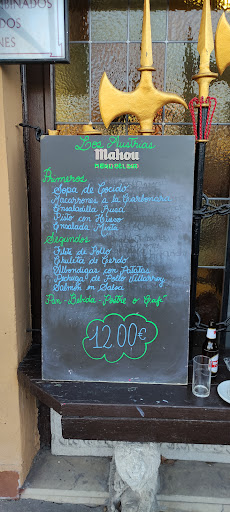 QUINADOS
DOS
NES
Los Austrias
Mahou
Primeros
Sopa de Cocido
Macarrones a la Carbonara
Ensaladilla Rusa
Pisto con Huevo
Ensalada Mixta
Segundos
Filete de Pollo
Chuleta de Cerdo
Albondigas con Patatas
Pechuga de Pollo Villaroy
Salmon en Salsa
Pan-Bebida-Postre o Café
12,00€